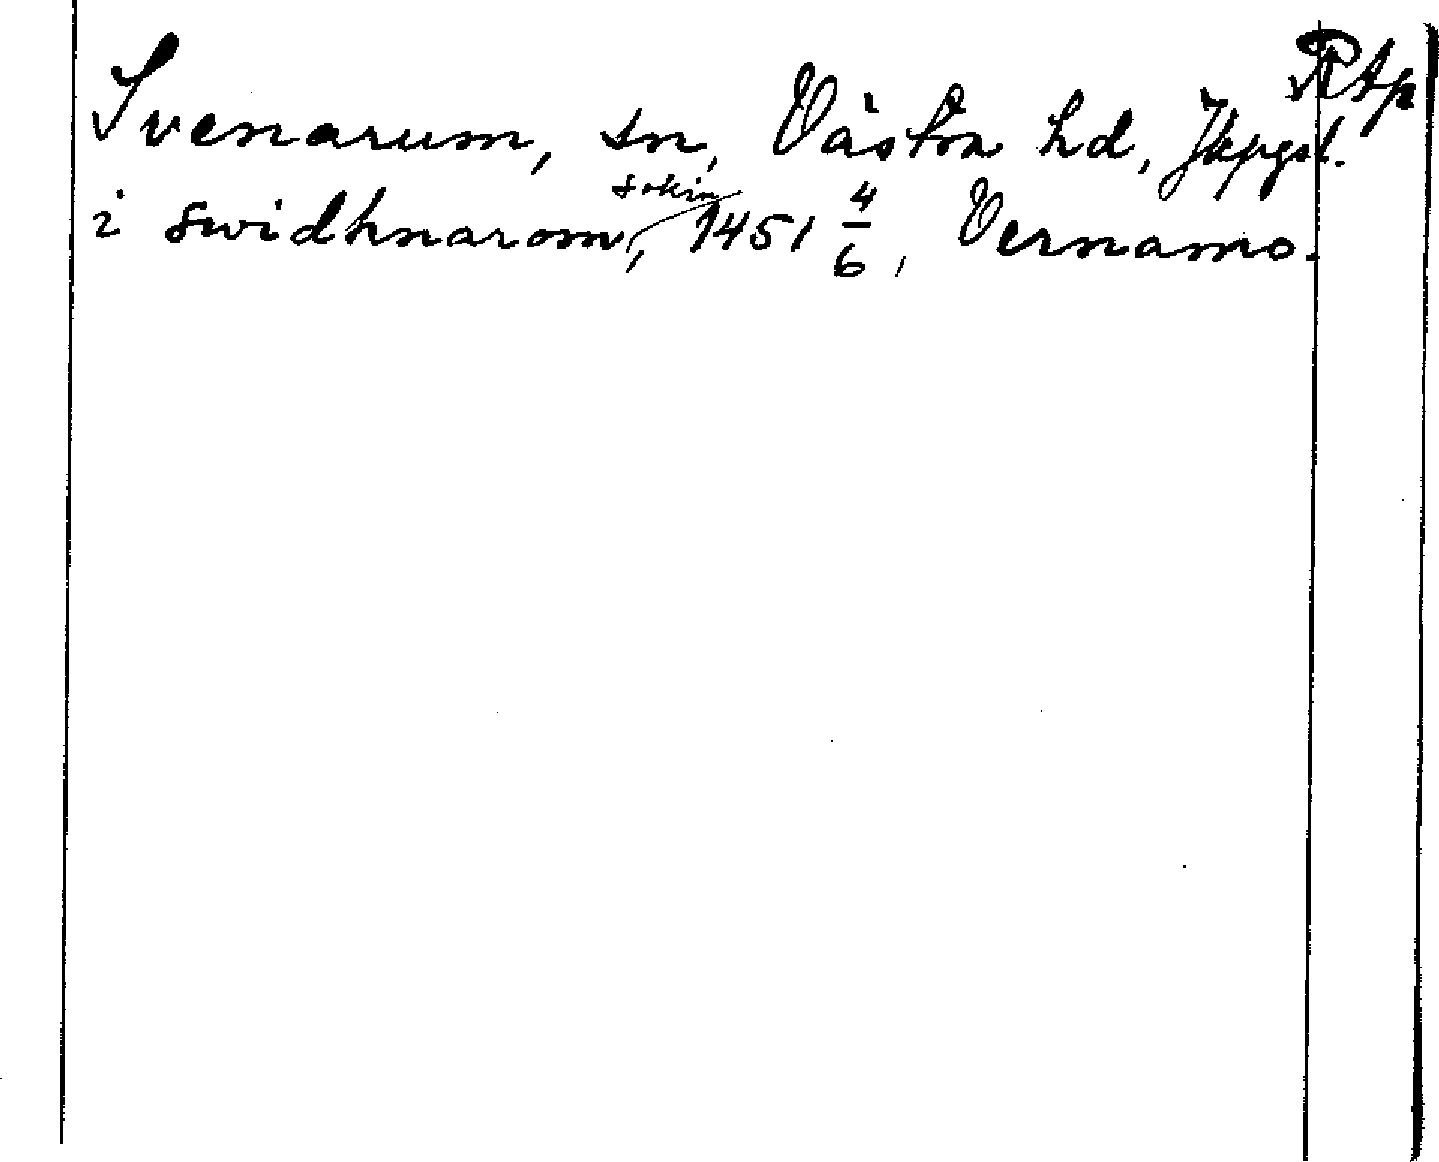 RAp
Svenarum, sn, Västra hd, Jkpgsl.
i swidhnarom sokin, 1451 4/6, Vernamo.